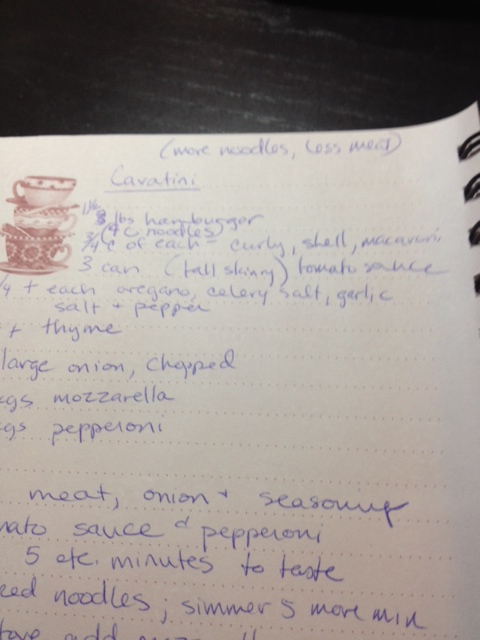 (more noodles, less meat)
Cavatini
lbs hambugger
(4 c noodles)
3/4 c of each - curly, shell, macaroni
3 can (tall skinny) tomato sauce
/4 t each oregano, celery salt, garlic
salt + pepper
t thyme
large onion, chopped
kgs mozzarella
kgs pepperoni
meat, onion + seasoning
mato sauce & pepperoni
5 etc. minutes to taste
ked noodles; simmer 5 more min
add